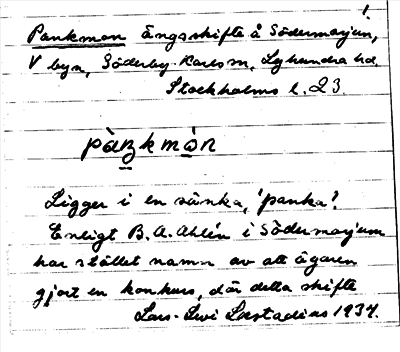 !
Pankmon ängsskifte å Södermarjum,
V byn, Söderby-Karls sn, Lyhundra hd.
Stockholms l. 23.
pàŋkmòn
Ligger i en sänka, 'panka'.
Enligt B. A. Ahlén i Södermarjum
har stället namn av att ägaren
gjort en konkurs, där detta skifte
Lars-Levi Læstadius 1934.